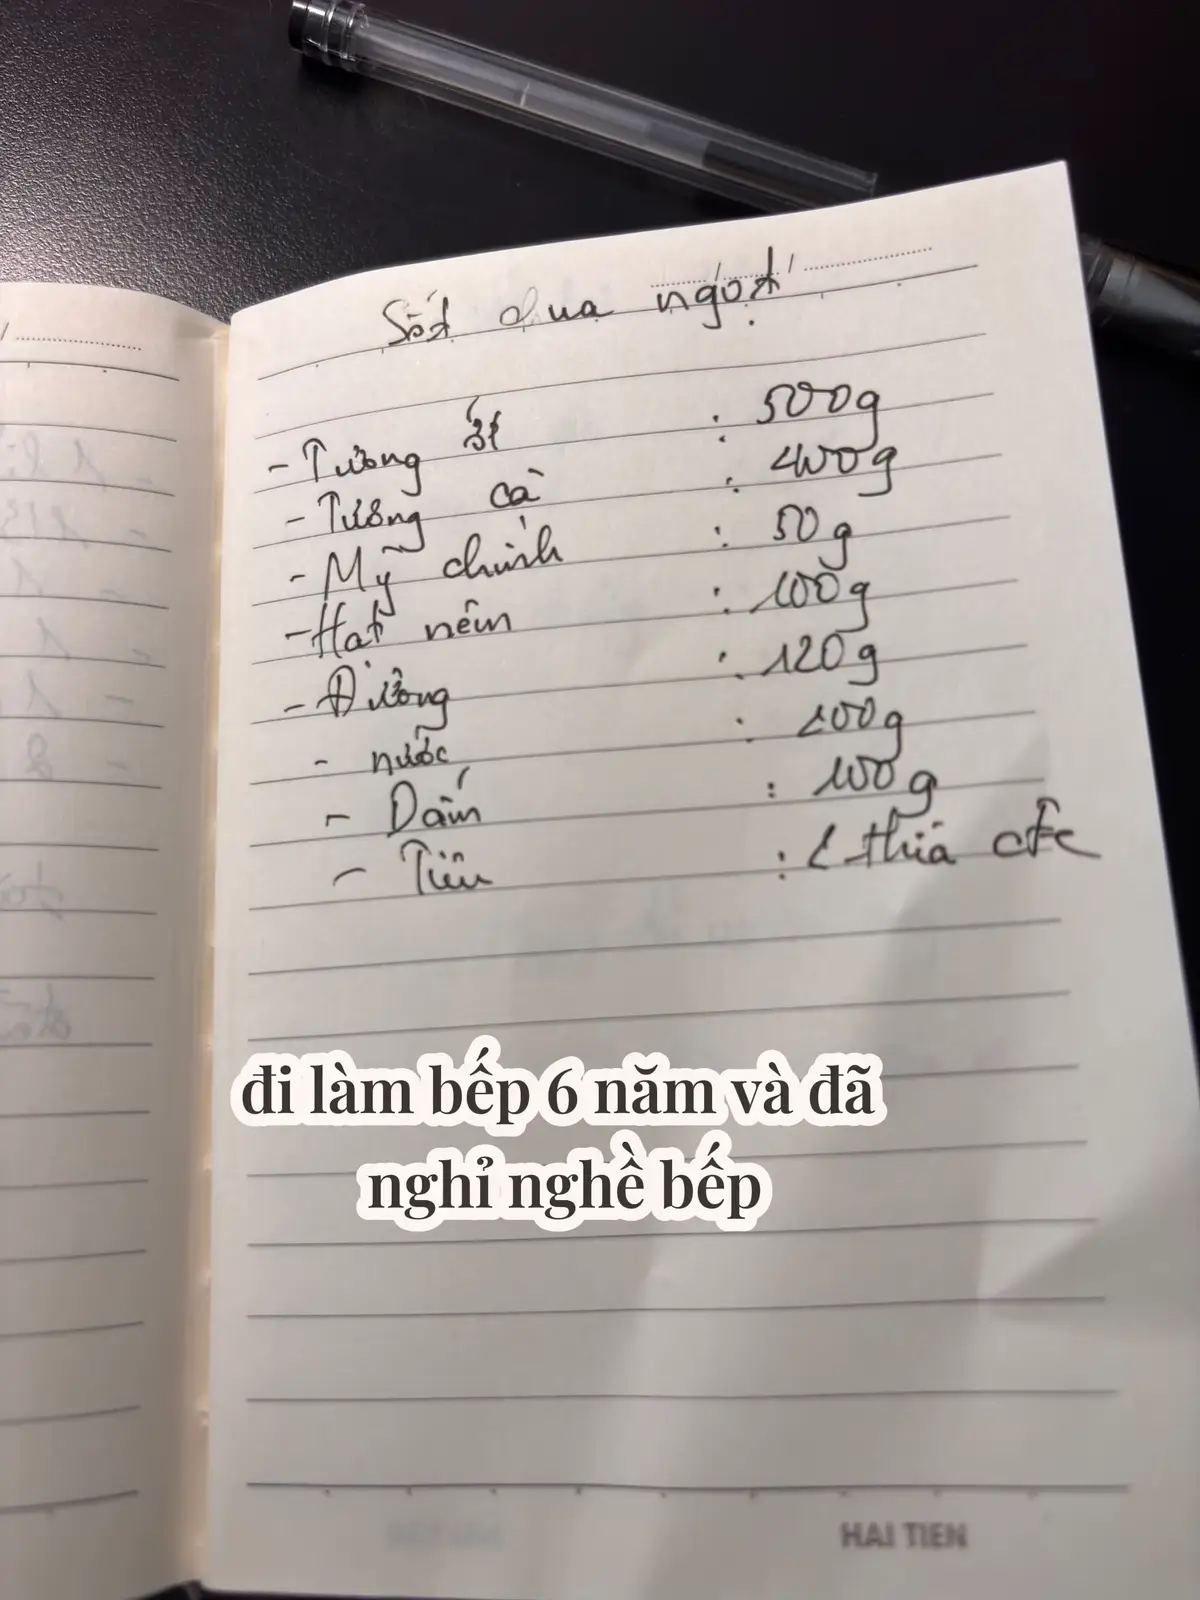 Sốt chua ngọt
- Tương ớt : 500g
- Tương cà : 400g
- Mỹ chính : 50g
- Hạt nêm : 100g
- Đường : 120g
- nước : 200g
- Dấm : 100g
- Tiêu : 1 thìa cfe
đi làm bếp 6 năm và đã
nghỉ nghề bếp
HAI TIEN